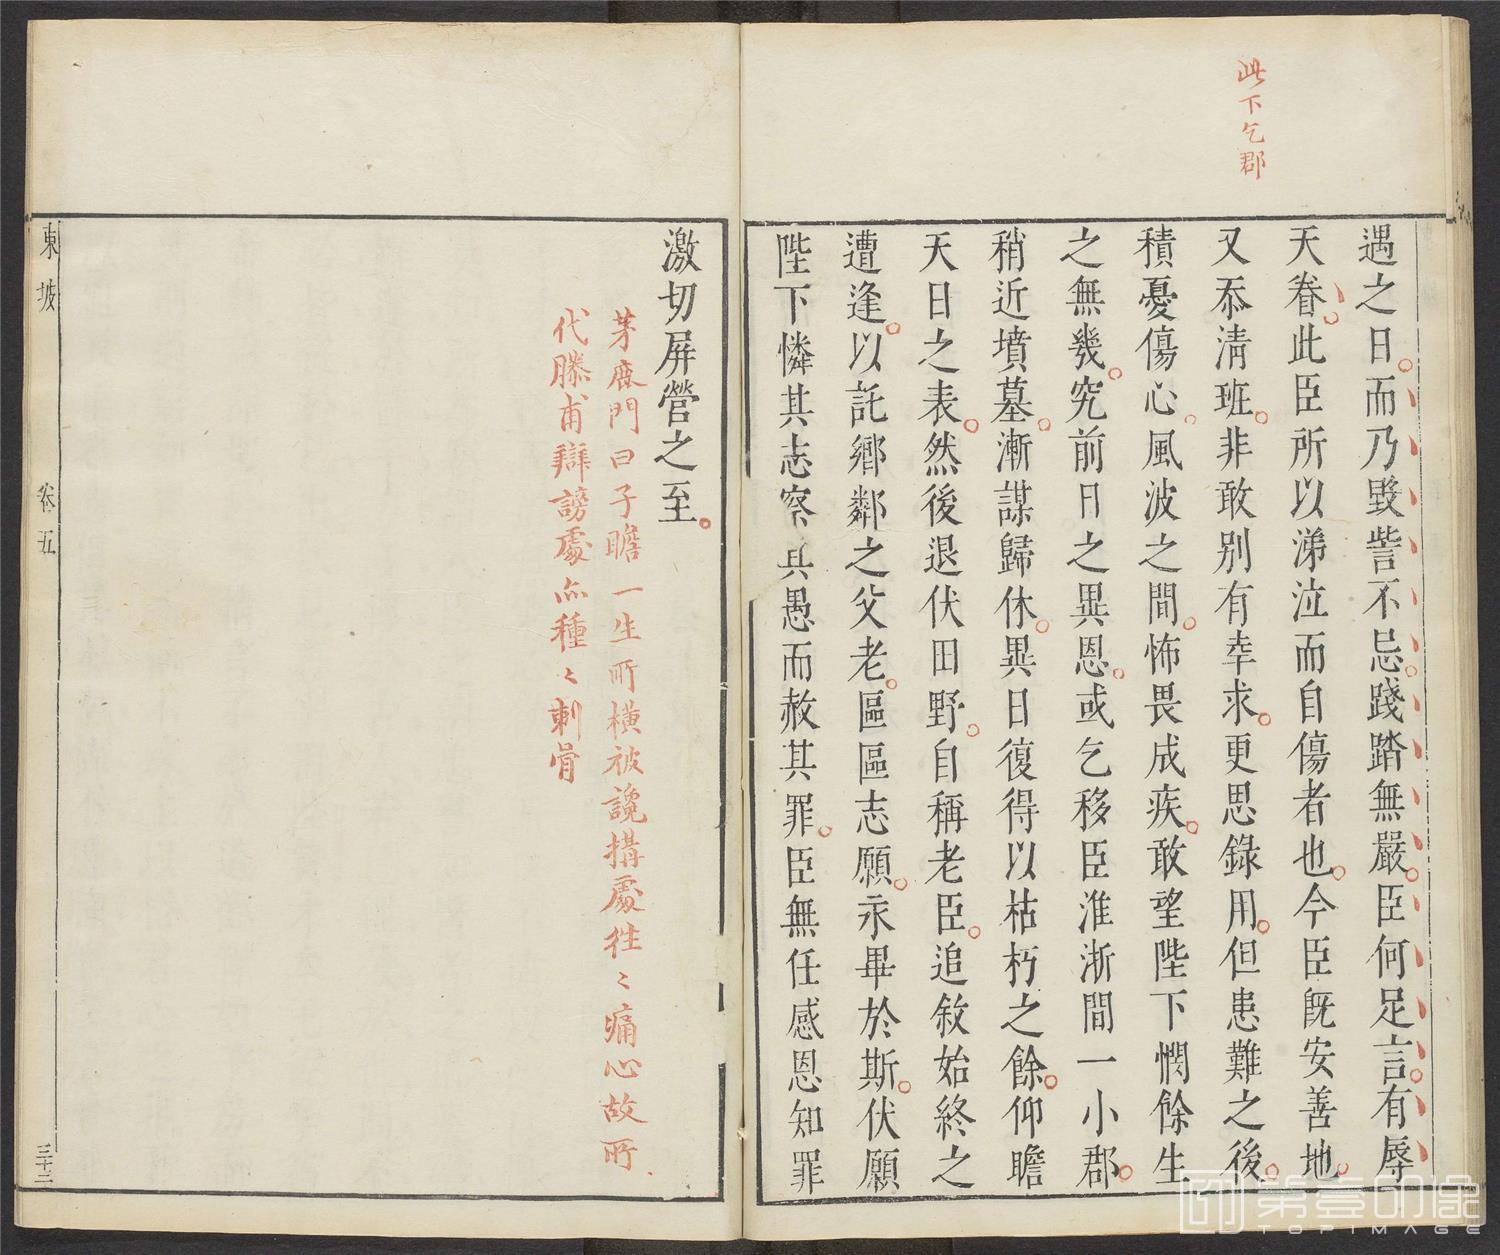 此下乞郡
遇之日而乃毀訾不忌踐踏無嚴臣何足言有辱
天眷此臣所以涕泣而自傷者也今臣旣安善地
又忝清班非敢别有幸求更思錄用但患難之後
積憂傷心風波之間怖畏成疾敢望陛下憫餘生
之無幾究前日之異恩或乞移臣淮浙間一小郡
稍近墳墓漸謀歸休異日復得以枯朽之餘仰瞻
天日之表然後退伏田野自稱老臣追敘始終之
遭逢以託鄉鄰之父老區區志願永畢於斯伏願
陛下憐其志察其愚而赦其罪臣無任感恩知罪
激切屏營之至
茅鹿門曰子瞻一生所橫被讒搆處往〻痛心故所
代滕甫辯謗處亦種〻刺骨
東坡 卷五 三十二
第壹印像
TOPIMAGE